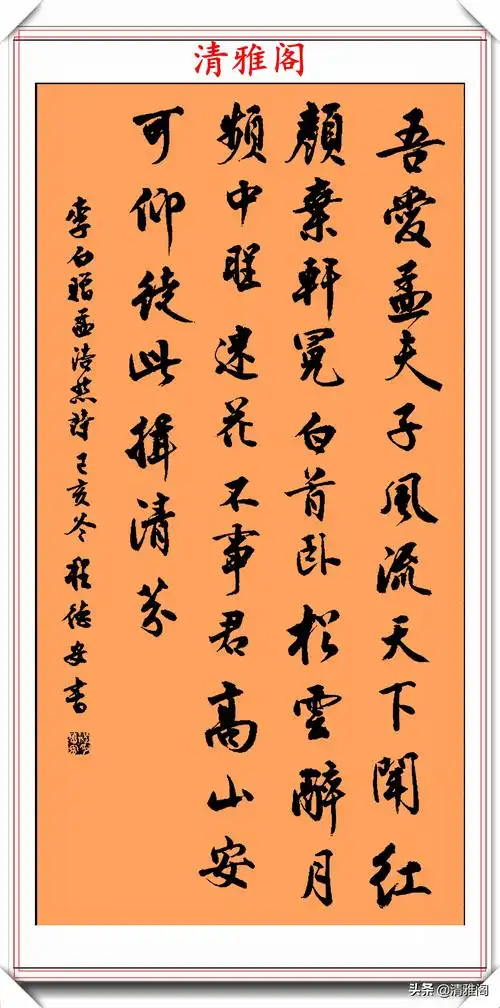 清雅阁
吾愛孟夫子風流天下聞红
顏棄軒冕白首卧松雲醉月
頻中聖迷花不事君高山安
可仰徒此揖清芬
李白赠孟浩然詩己亥冬程德安書
头条 @清雅阁